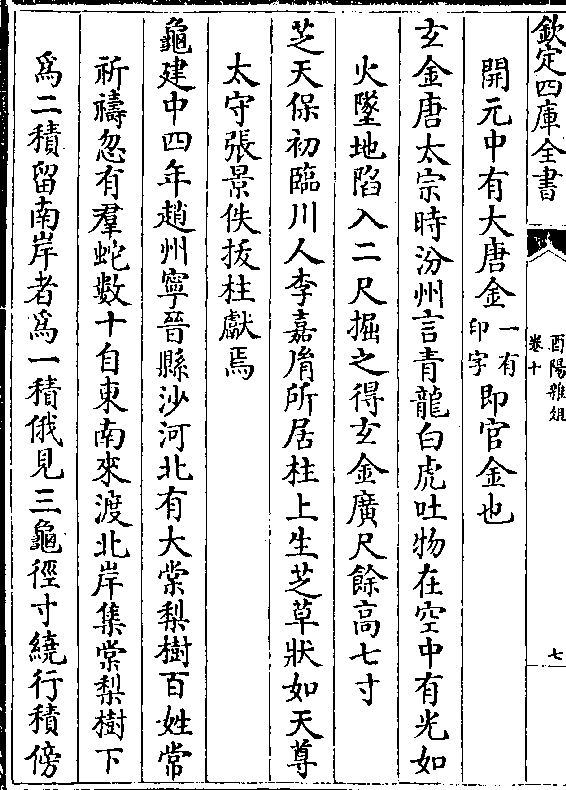 欽定四庫全書
酉陽雜俎
卷十
七
開元中有大唐金一有印字即官金也
玄金唐太宗時汾州言青龍白虎吐物在空中有光如
火墜地陷入二尺掘之得玄金廣尺餘高七寸
芝天保初臨川人李嘉胤所居柱上生芝草狀如天尊
太守張景佚拔柱獻焉
龜建中四年趙州寧晉縣沙河北有大棠梨樹百姓常
祈禱忽有羣蛇數十自東南來渡北岸集棠梨樹下
為二積留南岸者為一積俄見三龜徑寸繞行積傍